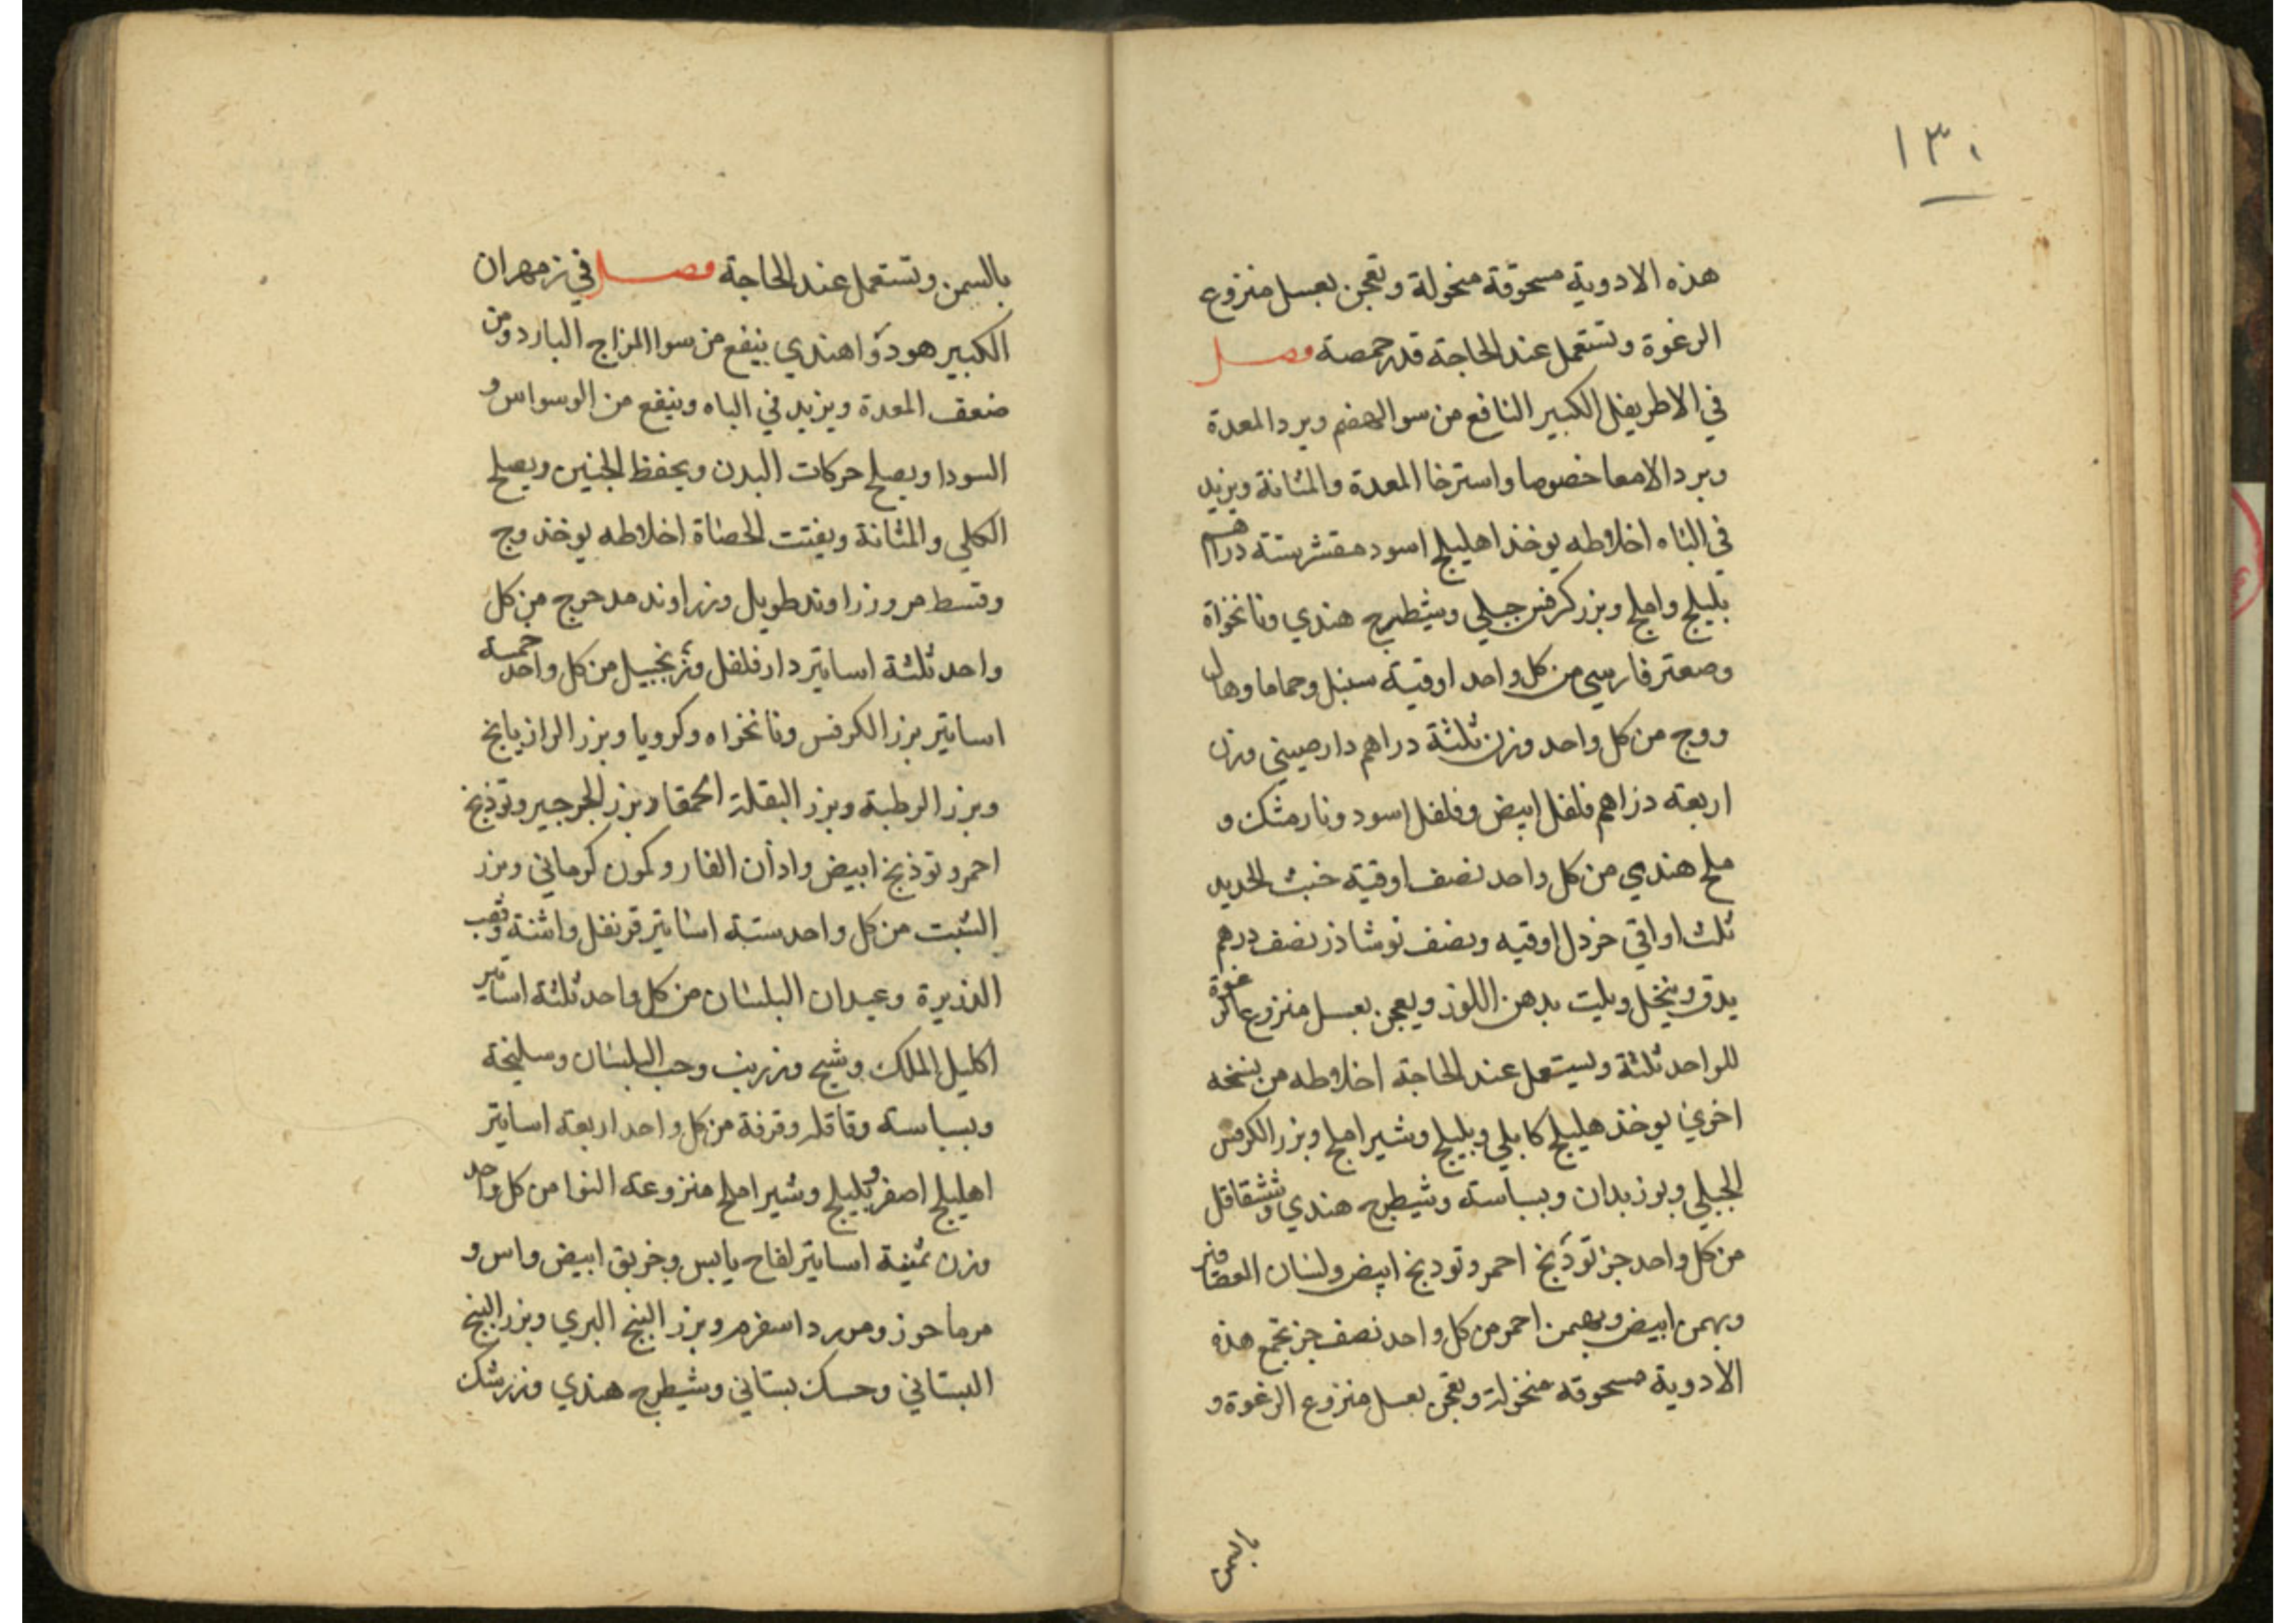 ١٣٠
هذه الادوية مسحوقة منخولة وتعجن بعسل منزوع
الرغوة وتستعمل عند الحاجة قدر حمصة فصل
في الاطريفل الكبير النافع من سوا الهضم وبرد المعدة
وبرد الامعا خصوصا واسترخا المعدة والمثانة ويزيد
في الباه اخلاطه يوخذ اهليلج اسود مقشر ستة دراهم
بليلج واملج وبزر كرفس جبلي وشيطرج هندي ونانخواة
وصعتر فارسي من كل واحد اوقية سنبل وحماما وهال
ووج من كل واحد وزن ثلثة دراهم دارصيني وزن
اربعة دراهم فلفل ابيض وفلفل اسود ونارمشك و
ملح هندي من كل واحد نصف اوقية خبث الحديد
ثلث اواقي خردل اوقيه ونصف نوشاذر نصف درهم
يدق وينخل ويلت بدهن اللوز ويعجن بعسل منزوع الرغوة
للواحد ثلثة ويستعمل عند الحاجة اخلاطه من نسخه
اخري يوخذ هليلج كابلي وبليلج وشير املج وبزر الكرفس
الجبلي وبوزيدان وبسباسة وشيطرج هندي وششقاقل
من كل واحد جز تودنج احمر وتودنج ابيض ولسان العصافير
وبهمن ابيض وبهمن احمر من كل واحد نصف جز تجمع هذه
الادوية مسحوقه منخولة وتعجن بعسل منزوع الرغوة و
بالسمن
بالسمن وتستعمل عند الحاجة فصل في زمهران
الكبير هو دوا هندي ينفع من سوا المزاج البارد ومن
ضعف المعدة ويزيد في الباه وينفع من الوسواس و
السودا ويصلح حركات البدن ويحفظ الجنين ويصلح
الكلي والمثانة ويفتت الحصاة اخلاطه يوخذ وج
وقسط مر وزراوند طويل وزراوند مدحرج من كل
واحد ثلثة اساتير دارفلفل وزنجبيل من كل واحد خمسة
اساتير بزر الكرفس ونانخواه وكرويا وبزر الرازيانج
وبزر الرطبة وبزر البقلة الحمقا وبزر الجرجير وتوذنج
احمر وتوذنج ابيض واذان الفار وكمون كرماني وبزر
الشبت من كل واحد ستة اساتير قرنفل واشنة وقصب
الذريرة وعيدان البلسان من كل واحد ثلثة اساتير
اكليل الملك وشيح وزرنب وحب البلسان وسليخة
وبسباسه وقاقلة وقرفة من كل واحد اربعة اساتير
اهليلج اصفر وبليلج وشير املج منزوعة النوا من كل واحد
وزن ثمنية اساتير لفاح يابس وخربق ابيض واس و
مرماحوز ومورد اسفرم وبزر البنج البري وبزر البنج
البستاني وحسك بستاني وشيطرج هندي وزرشك